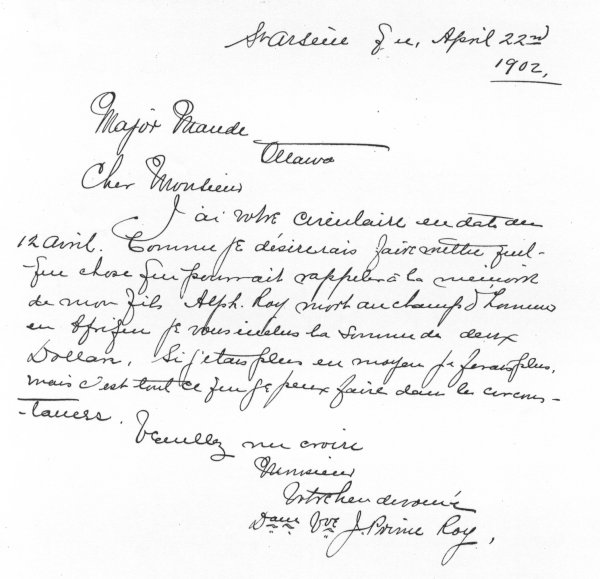 St Arsène Que, April 22nd
1902,
Major Maude
Ottawa
Cher Monsieur
J'ai votre circulaire en date du
12 Avril. Comme je désirerais faire mettre quel-
que chose qui pourrait rappeler à la mémoire
de mon fils Alph. Roy mort au champ d'honneur
en Afrique je vous inclus la somme de deux
Dollars. Si j'étais plus en moyen je ferais plus,
mais c'est tout ce que je peux faire dans les circons-
-tances.
Veuillez me croire
Monsieur
Votre bien dévouée
Dame Vve J. Prime Roy,